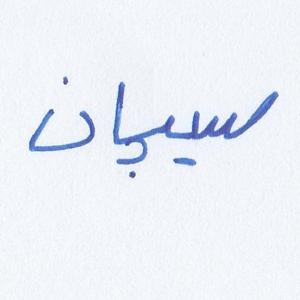 سیپان